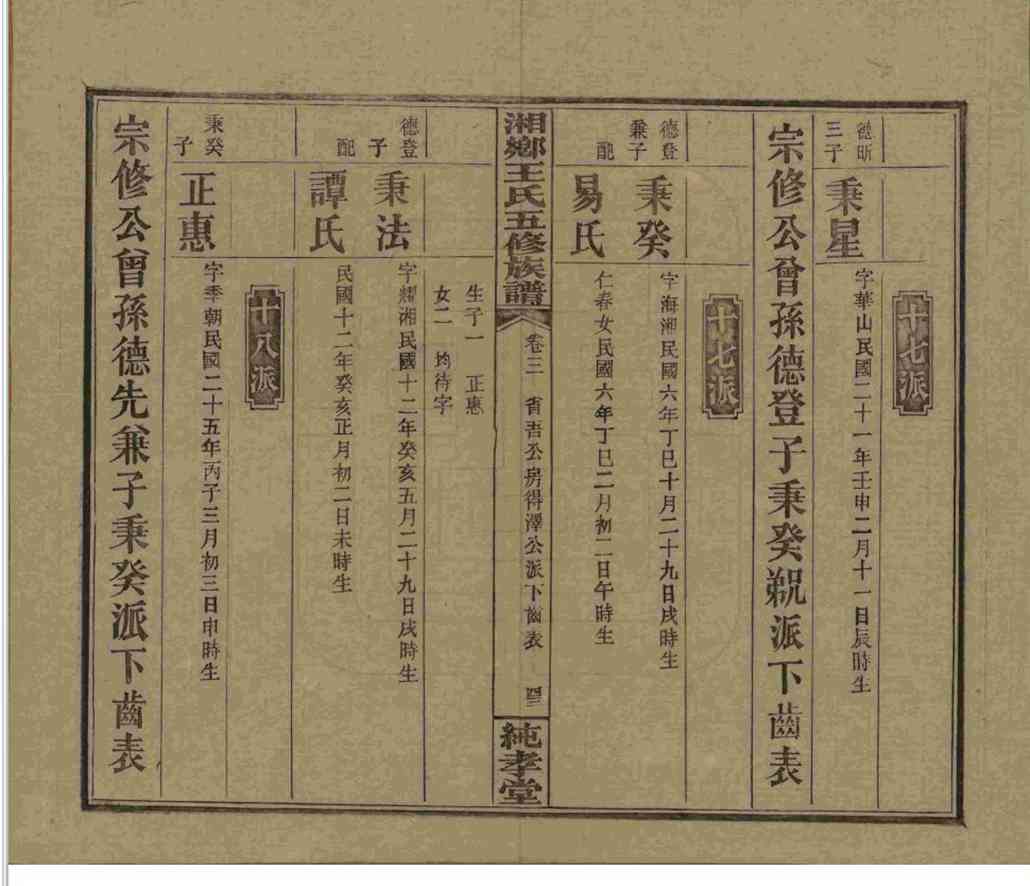 十七派
德昕三子
秉星
字華山民國二十一年壬申二月十一日辰時生
宗修公曾孫德登子秉癸覡派下齒表
十七派
德登兼子
秉癸
字海湘民國六年丁巳十月二十九日戌時生
配
易氏
仁春女民國六年丁巳二月初二日午時生
湘鄉王氏五修族譜
卷三
省吾公房得澤公派下齒表
純孝堂
生子一 正惠
女二 均待字
德登子
秉法
字耀湘民國十二年癸亥五月二十九日戌時生
配
譚氏
民國十二年癸亥正月初二日未時生
十八派
秉癸子
正惠
字季朝民國二十五年丙子三月初三日申時生
宗修公曾孫德先兼子秉癸派下齒表